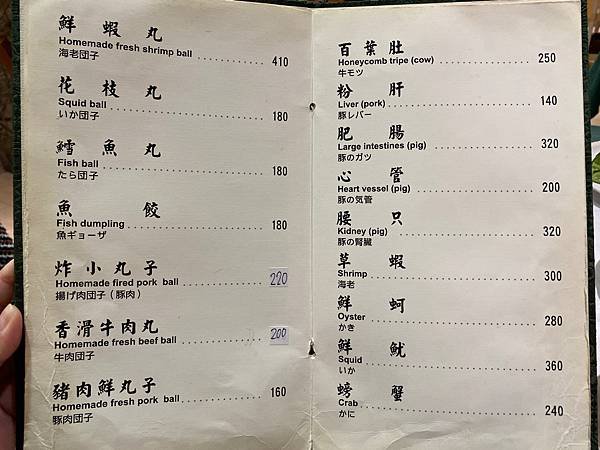 鮮蝦丸
Homemade fresh shrimp ball .......... 410
海老団子
花枝丸
Squid ball .......... 180
いか団子
鱈魚丸
Fish ball .......... 180
たら団子
魚餃
Fish dumpling .......... 180
魚ギョーザ
炸小丸子
Homemade fired pork ball .......... 220
揚げ肉団子（豚肉）
香滑牛肉丸
Homemade fresh beef ball .......... 200
牛肉団子
豬肉鮮丸子
Homemade fresh pork ball .......... 160
豚肉団子
百葉肚
Honeycomb tripe (cow) .......... 250
牛モツ
粉肝
Liver (pork) .......... 140
豚レバー
肥腸
Large intestines (pig) .......... 320
豚のガツ
心管
Heart vessel (pig) .......... 200
豚の気管
腰只
Kidney (pig) .......... 320
豚の腎臓
草蝦
Shrimp .......... 300
海老
鮮蚵
Oyster .......... 280
かき
鮮魷
Squid .......... 360
いか
螃蟹
Crab .......... 240
かに